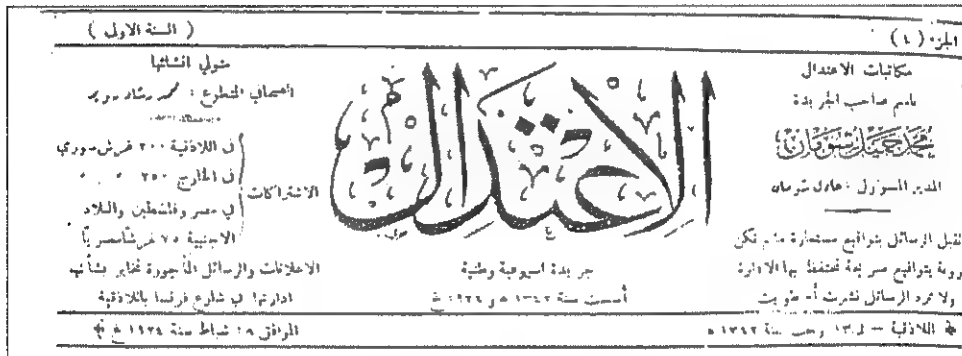 الجزء ( ٤ )
( السنة الاولى )
مكاتبات الاعتدال
باسم صاحب الجريدة
محمد جميل شومان
المدير المسؤول : عادل شومان
تقبل الرسائل بتواقيع مستعارة ما لم تكن
بتواقيع صريحة تحتفظ بها الادارة
ولا ترد الرسائل نشرت أم طويت
الاعتدال
جريدة اسبوعية وطنية
أسست سنة ١٣٤٢ هـ و ١٩٢٤ غ
متولي انشائها
الصحافي المتطوع : محمد رشاد
الاشتراكات
في اللاذقية ٢٠٠ غرش سوري
في الخارج ٢٥٠ » »
في مصر وفلسطين والبلاد
الاجنبية ٧٥ غرشا مصريا
الاعلانات والرسائل المأجورة تخابر بشأنها
ادارتها في شارع فرنسا باللاذقية
اللاذقية — في ١٣ رجب سنة ١٣٤٢ هـ
الموافق ١٨ شباط سنة ١٩٢٤ غ